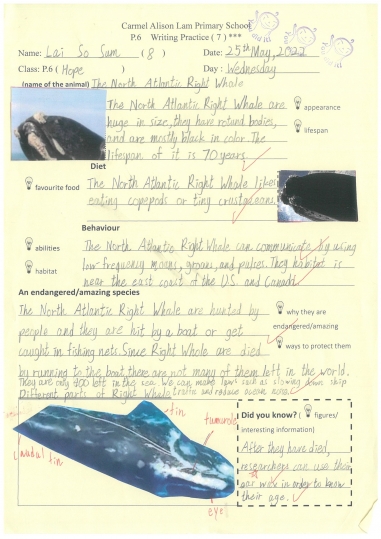 Carmel Alison Lam Primary School
P.6 Writing Practice ( 7 ) ***
Name: Lai So Sum ( 8 ) Date: 25th May, 2022
Class: P.6 ( Hope ) Day : Wednesday
(name of the animal) The North Atlantic Right Whale
The North Atlantic Right Whale are
huge in size, they have rotund bodies,
and are mostly black in color. The
lifespan of it is 70 years.
appearance
lifespan
Diet
favourite food
The North Atlantic Right Whale likes
eating copepods or tiny crustaceans.
Behaviour
abilities
habitat
The North Atlantic Right Whale can communicate by using
low frequency moans, groans, and pulses. They habitat is
near the east coast of the U.S. and Canada.
An endangered/amazing species
The North Atlantic Right Whale are hunted by
people and they are hit by a boat or get
caught in fishing nets. Since Right Whale are died
by running to the boat, there are not many of them left in the world.
They are only 400 left in the sea. We can make laws such as slowing down ship
traffic and reduce ocean
why they are
endangered/amazing
ways to protect them
Different parts of Right Whale
fin
eye
Did you know? ( figures/
interesting information)
After they have died,
researchers can use their
ear wax in order to know
their age.